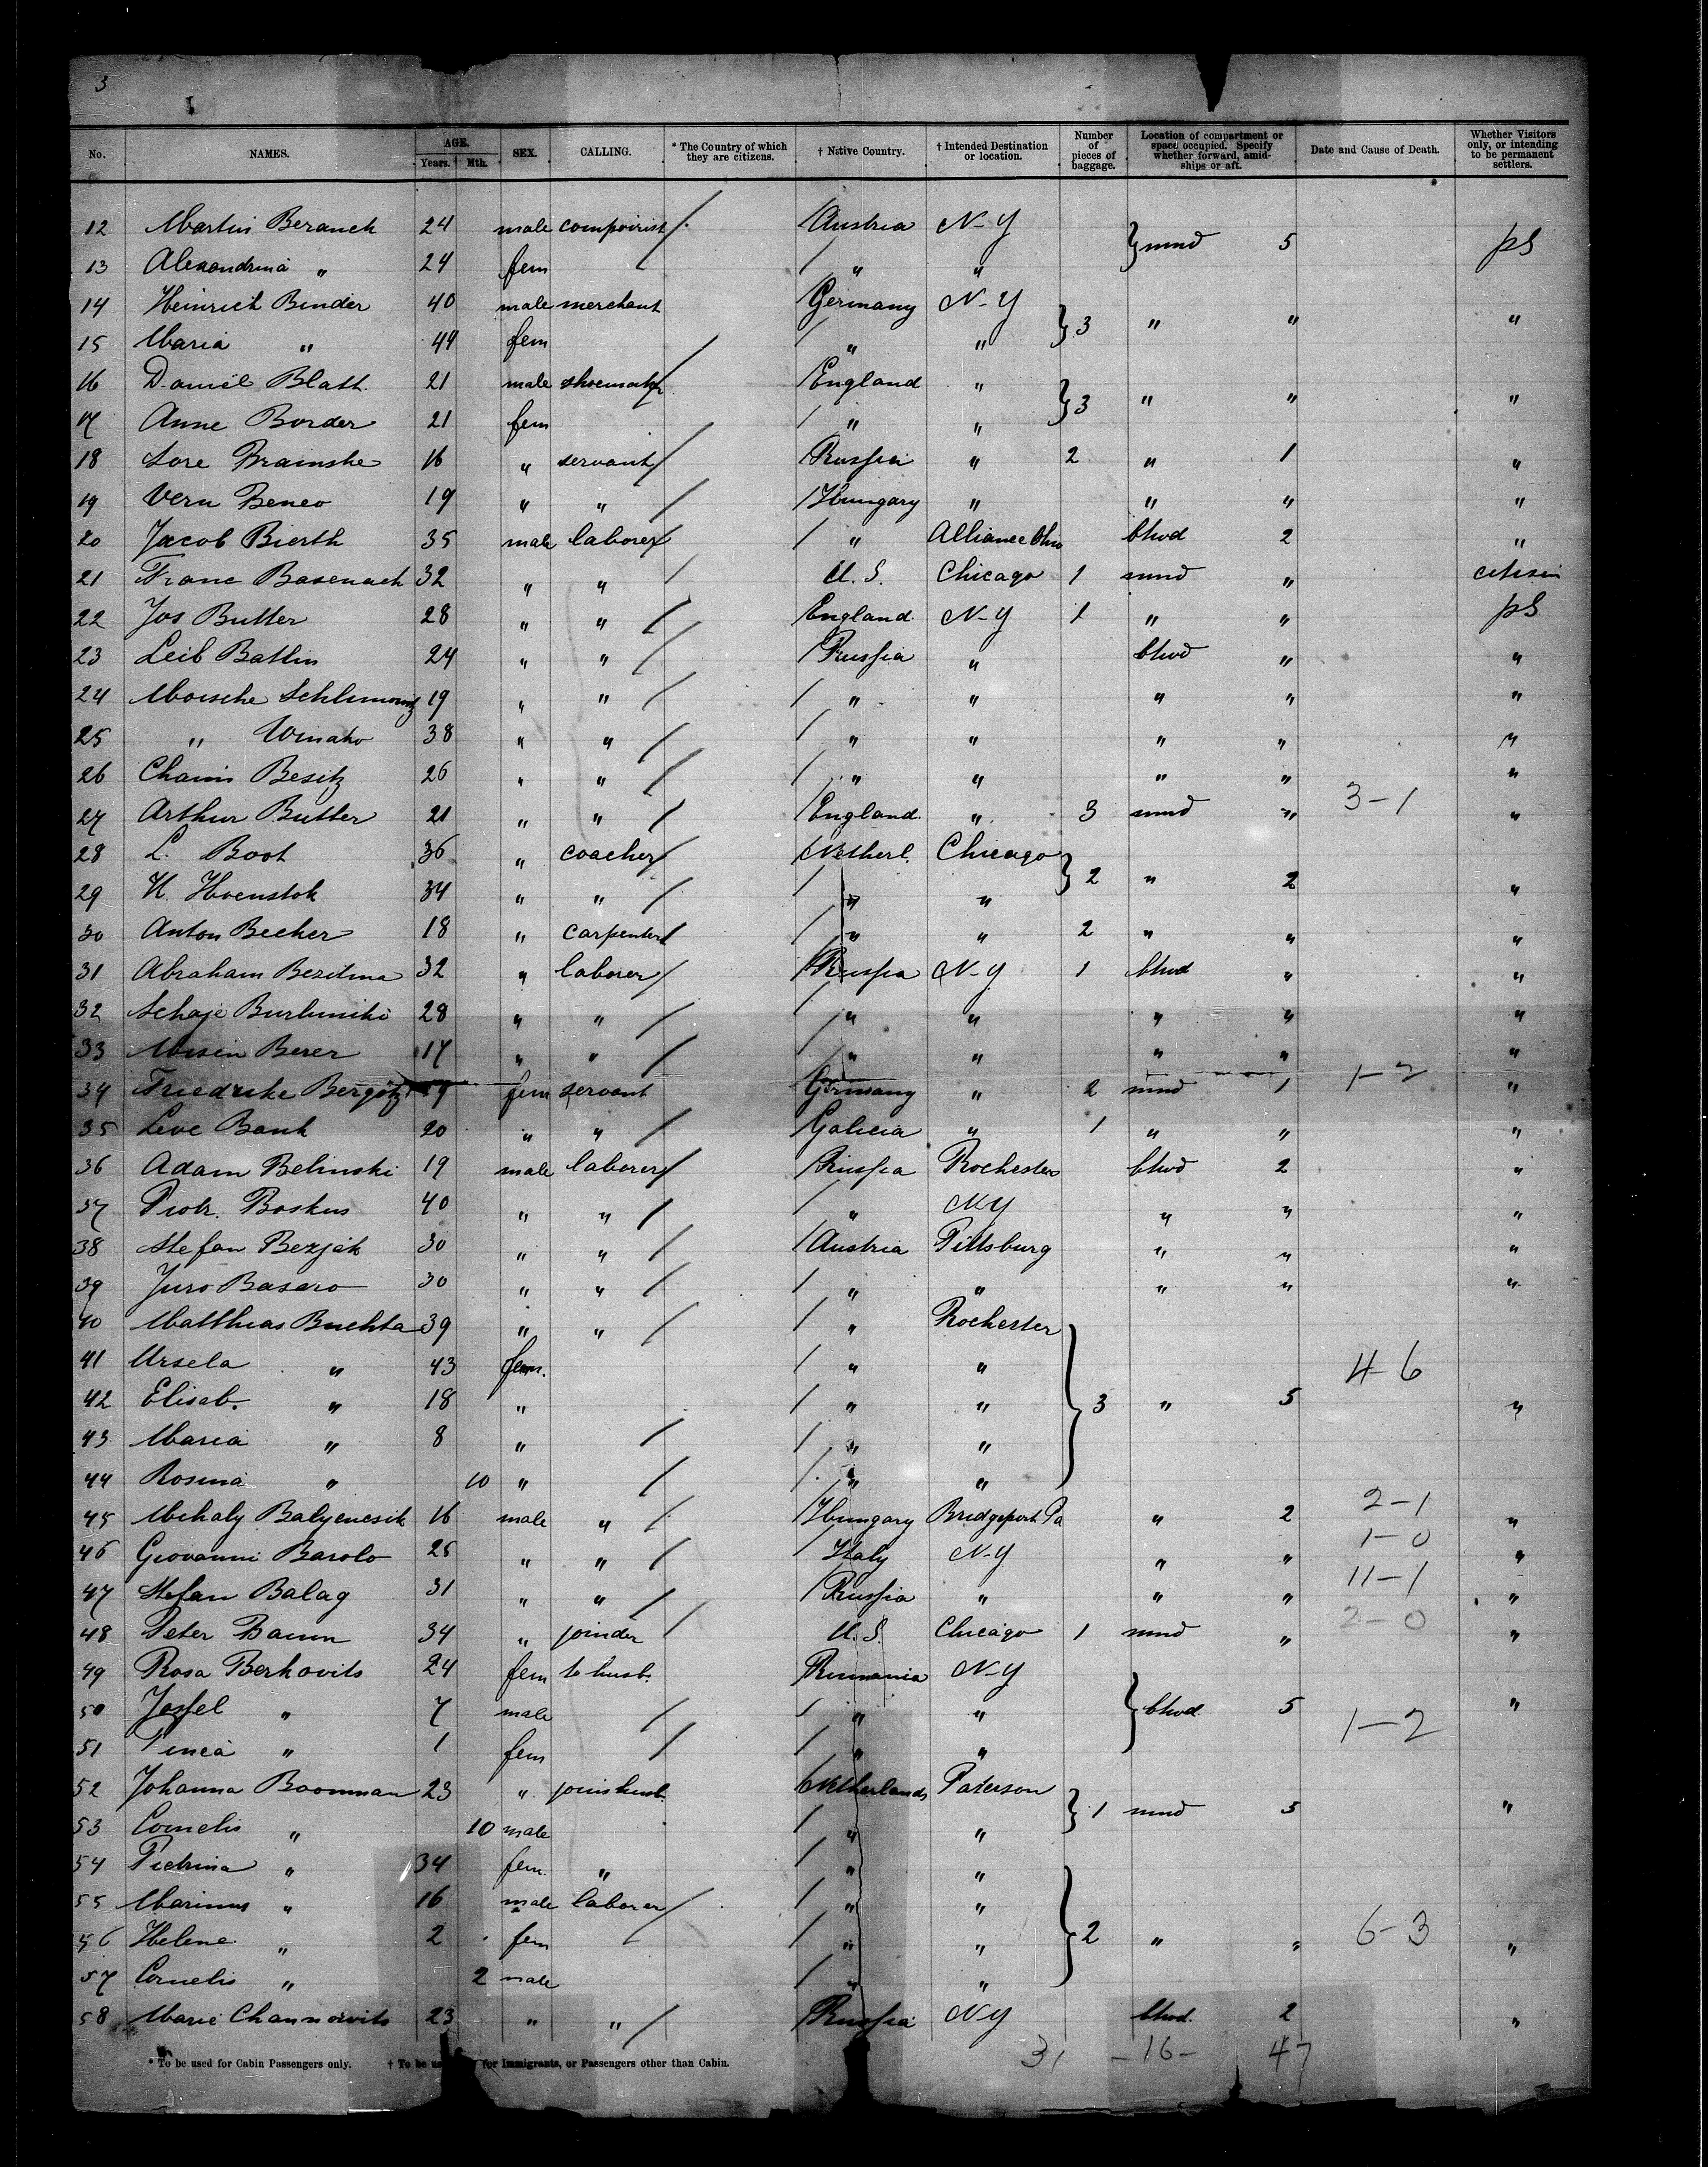 3
No. NAMES. AGE. Years. Mth. SEX. CALLING. * The Country of which they are citizens. † Native Country. † Intended Destination or location. Number of pieces of baggage. Location of compartment or space occupied. Specify whether forward, amidships or aft. Date and Cause of Death. Whether Visitors only, or intending to be permanent settlers.
12 Martin Beranek 24 male Austria N-Y } mnd 5 pS
13 Alexandrina " 24 fem " "
14 Heinrich Binder 40 male merchant Germany N-Y } 3 " " "
15 Maria " 49 fem " "
16 Daniel Blatt 21 male shoemaker England " } 3 " " "
17 Anne Border 21 fem " "
18 Sore Brainske 16 " servant Russia " 2 " 1 "
19 Veru Beneo 19 " " Hungary " " " "
20 Jacob Bierth 35 male laborer " Alliance Ohio bhwd 2 "
21 Franc Basenach 32 " " U.S. Chicago 1 mnd " citisin
22 Jos Butler 28 " " England N-Y 1 " " pS
23 Leib Batlin 24 " " Russia " bhwd " "
24 Moische 19 " " " " " " "
25 " Winako 38 " " " " " " "
26 Chaim Besitz 26 " " " " " " "
27 Arthur Butler 21 " " England " 3 mnd " 3-1 "
28 L. Boot 36 " coacher Netherl. Chicago } 2 " 2 "
29 H. Hoenstok 34 " " " "
30 Anton Becher 18 " carpenter " " 2 " " "
31 Abraham Bezdina 32 " laborer Russia N-Y 1 bhwd " "
32 Schaje Burluniki 28 " " " " " " "
33 Mosein Berer 17 " " " " " " "
34 Friedrike 19 fem servant Germany " 2 mnd 1 1-2 "
35 Leve Bank 20 " " Galicia " 1 " " "
36 Adam Belinski 19 male laborer Russia Rochester bhwd 2 "
37 Piotr. Boskus 40 " " " NY " " "
38 Stefan Bezjak 30 " " Austria Pittsburg " " "
39 Juro Basaro 30 " " " " " " "
40 Matthias Buchta 39 " " " Rochester
41 Ursela " 43 fem. " " 4-6
42 Elisab. " 18 " " " } 3 " 5 "
43 Maria " 8 " " "
44 Rosina " 10 " " "
45 Mihaly Balyencsik 16 male " Hungary Bridgeport Pa " 2 2-1 "
46 Giovanni Barolo 25 " " Italy N-Y " " 1-0 "
47 Stefan Balag 31 " " Russia " " " 11-1 "
48 Peter Baum 34 " joinder U.S. Chicago 1 mnd " 2-0 "
49 Rosa Berkovits 24 fem to husb. Rumania N-Y
50 Jossel " 7 male " " } bhwd. 5 "
51 " 1 fem " " 1-2
52 Johanna Boomman 23 " joins husb. Netherlands Paterson } 1 mnd 5 "
53 Cornelis " 10 male " "
54 Pietrina " 34 fem. " " "
55 Marinus " 16 male laborer " "
56 Helene " 2 fem " " } 2 " " 6-3 "
57 Cornelis " 2 male " "
58 Marie 23 " " Russia NY bhwd. 2 "
31 - 16 - 47
* To be used for Cabin Passengers only. † To be used for Immigrants, or Passengers other than Cabin.